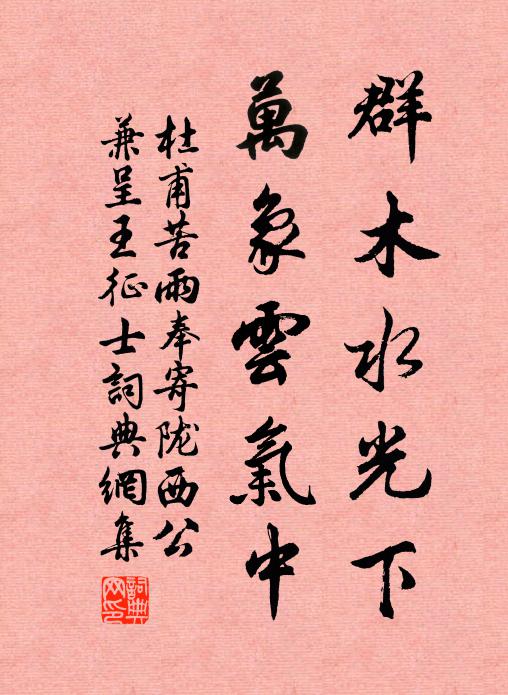 群木水光下
萬象雲氣中
杜甫苦雨奉寄陇西公
兼呈王征士詞典網集
詞典网印